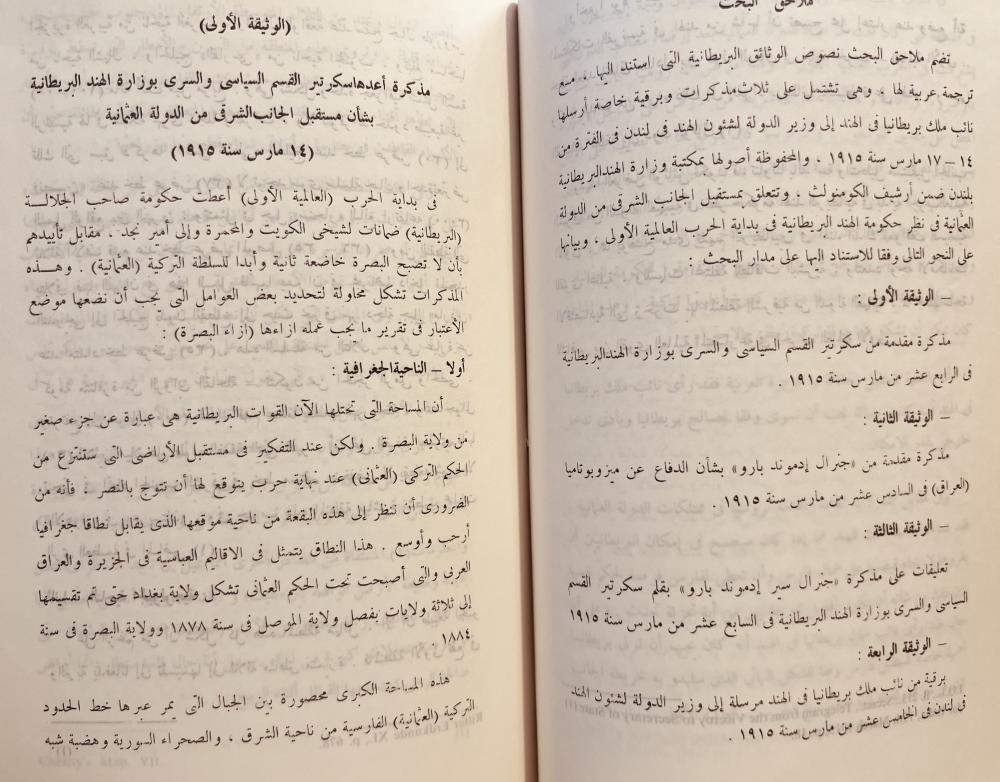 ملاحق البحث
تضم ملاحق البحث نصوص الوثائق البريطانية التى استند اليها ، مع
ترجمة عربية لها . وهى تشتمل على ثلاث مذكرات وبرقية خاصة أرسلها
نائب ملك بريطانيا فى الهند إلى وزير الدولة لشئون الهند فى لندن فى الفترة من
١٤ – ١٧ مارس سنة ١٩١٥ ، والمحفوظة أصولها بمكتبة وزارة الهند البريطانية
بلندن ضمن أرشيف الكومنولث ، وتتعلق بمستقبل الجانب الشرقى من الدولة
العثمانية فى نظر حكومة الهند البريطانية فى بداية الحرب العالمية الأولى ، وبيانها
على النحو التالى وفقا للاستناد اليها على مدار البحث :
– الوثيقة الأولى :
مذكرة مقدمة من سكرتير القسم السياسى والسرى بوزارة الهند البريطانية
فى الرابع عشر من مارس سنة ١٩١٥ .
– الوثيقة الثانية :
مذكرة مقدمة من «جنرال إدموند بارو» بشأن الدفاع عن ميزوبوتاميا
(العراق) فى السادس عشر من مارس سنة ١٩١٥ .
– الوثيقة الثالثة :
تعليقات على مذكرة «جنرال سير إدموند بارو» بقلم سكرتير القسم
السياسى والسرى بوزارة الهند البريطانية فى السابع عشر من مارس سنة ١٩١٥
– الوثيقة الرابعة :
برقية من نائب ملك بريطانيا فى الهند مرسلة إلى وزير الدولة لشئون الهند
فى لندن فى الخامس عشر من مارس سنة ١٩١٥ .
(الوثيقة الأولى)
مذكرة أعدها سكرتير القسم السياسى والسرى بوزارة الهند البريطانية
بشأن مستقبل الجانب الشرقى من الدولة العثمانية
(١٤ مارس سنة ١٩١٥)
فى بداية الحرب (العالمية الأولى) أعطت حكومة صاحب الجلالة
(البريطانية) ضمانات لشيخى الكويت والمحمرة وإلى أمير نجد . مقابل تأييدهم
بأن لا تصبح البصرة خاضعة ثانية وأبدا للسلطة التركية (العثمانية) . وهذه
المذكرات تشكل محاولة لتحديد بعض العوامل التى يجب أن نضعها موضع
الأعتبار فى تقرير ما يجب عمله ازاءها (ازاء البصرة) :
أولا – الناحية الجغرافية :
أن المساحة التى تحتلها الآن القوات البريطانية هى عبارة عن جزء صغير
من ولاية البصرة . ولكن عند التفكير فى مستقبل الأراضى التى ستنتزع من
الحكم التركى (العثمانى) عند نهاية حرب يتوقع لها أن تتوج بالنصر ، فأنه من
الضرورى أن ننظر إلى هذه البقعة من ناحية موقعها الذى يقابل نطاقا جغرافيا
أرحب وأوسع . هذا النطاق يتمثل فى الاقاليم العباسية فى الجزيرة والعراق
العربى والتى أصبحت تحت الحكم العثمانى تشكل ولاية بغداد حتى تم تقسيمها
إلى ثلاثة ولايات بفصل ولاية الموصل فى سنة ١٨٧٨ وولاية البصرة فى سنة
١٨٨٤ .
هذه المساحة الكبرى محصورة بين الجبال التى يمر عبرها خط الحدود
التركية (العثمانية) الفارسية من ناحية الشرق ، والصحراء السورية وهضبة شبه